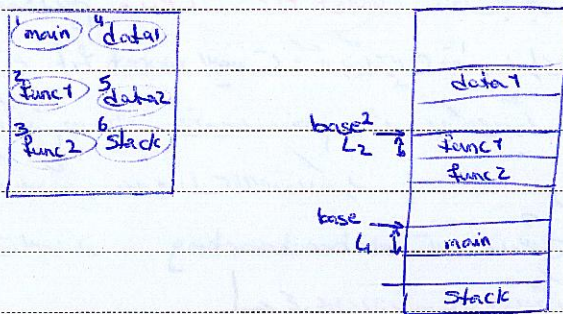 1 main 4 data1
2 func1 5 data2
3 func2 6 stack
data1
base2
L2
func1
func2
base
L1
main
stack